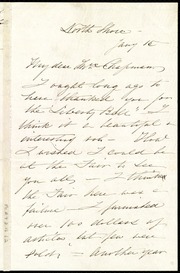 North Shore
Jany 15
My dear Mrs Chapman
I ought long ago to
have thanked you for
the Liberty Bell - I
think it a beautiful &
interesting one - How
I wished I could be
at the Fair to see
you all - I think
the Fair here was a
failure - I furnished
over two dollars of
articles but few were
sold - Another year